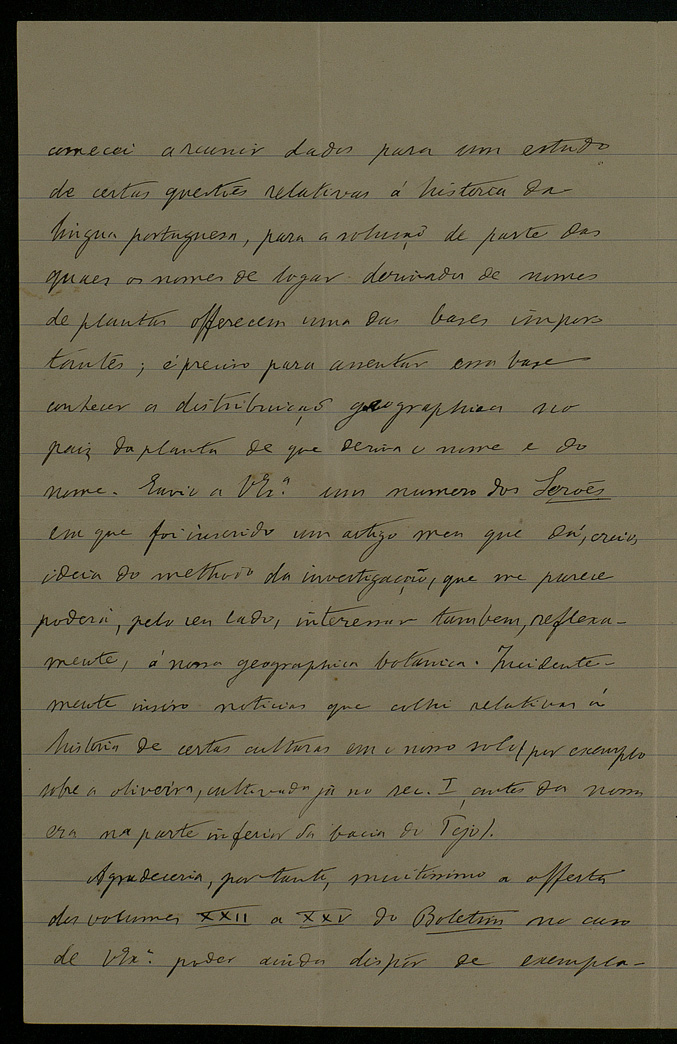 comecei a reunir dados para um estudo
de certas questões relativas á historia da
lingua portuguesa, para a solução de parte das
quaes os nomes de logar derivados de nomes
de plantas offerecem uma das bases impor-
tantes; é preciso para assentar essa base
conhecer a distribuição geographica no
paiz da planta de que deriva o nome e do
nome. Envio a VExª um numero dos Serões
em que foi inserido um artigo meu que dá, creio,
ideia do methodo da investigação, que me parece
poderá, pelo seu lado, interessar tambem, reflexa-
mente, á nossa geographica botanica. Incidente-
mente insiro noticias que colhi relativas á
historia de certas culturas em o nosso solo (por exemplo
sobre a oliveira, cultivada já no sec. I antes da nossa
era na parte inferior da bacia do Tejo).
Agradeceria, por tanto, muitissimo a offerta
dos volumes XXII a XXV do Boletim no caso
de VExª poder ainda dispôr de exempla-